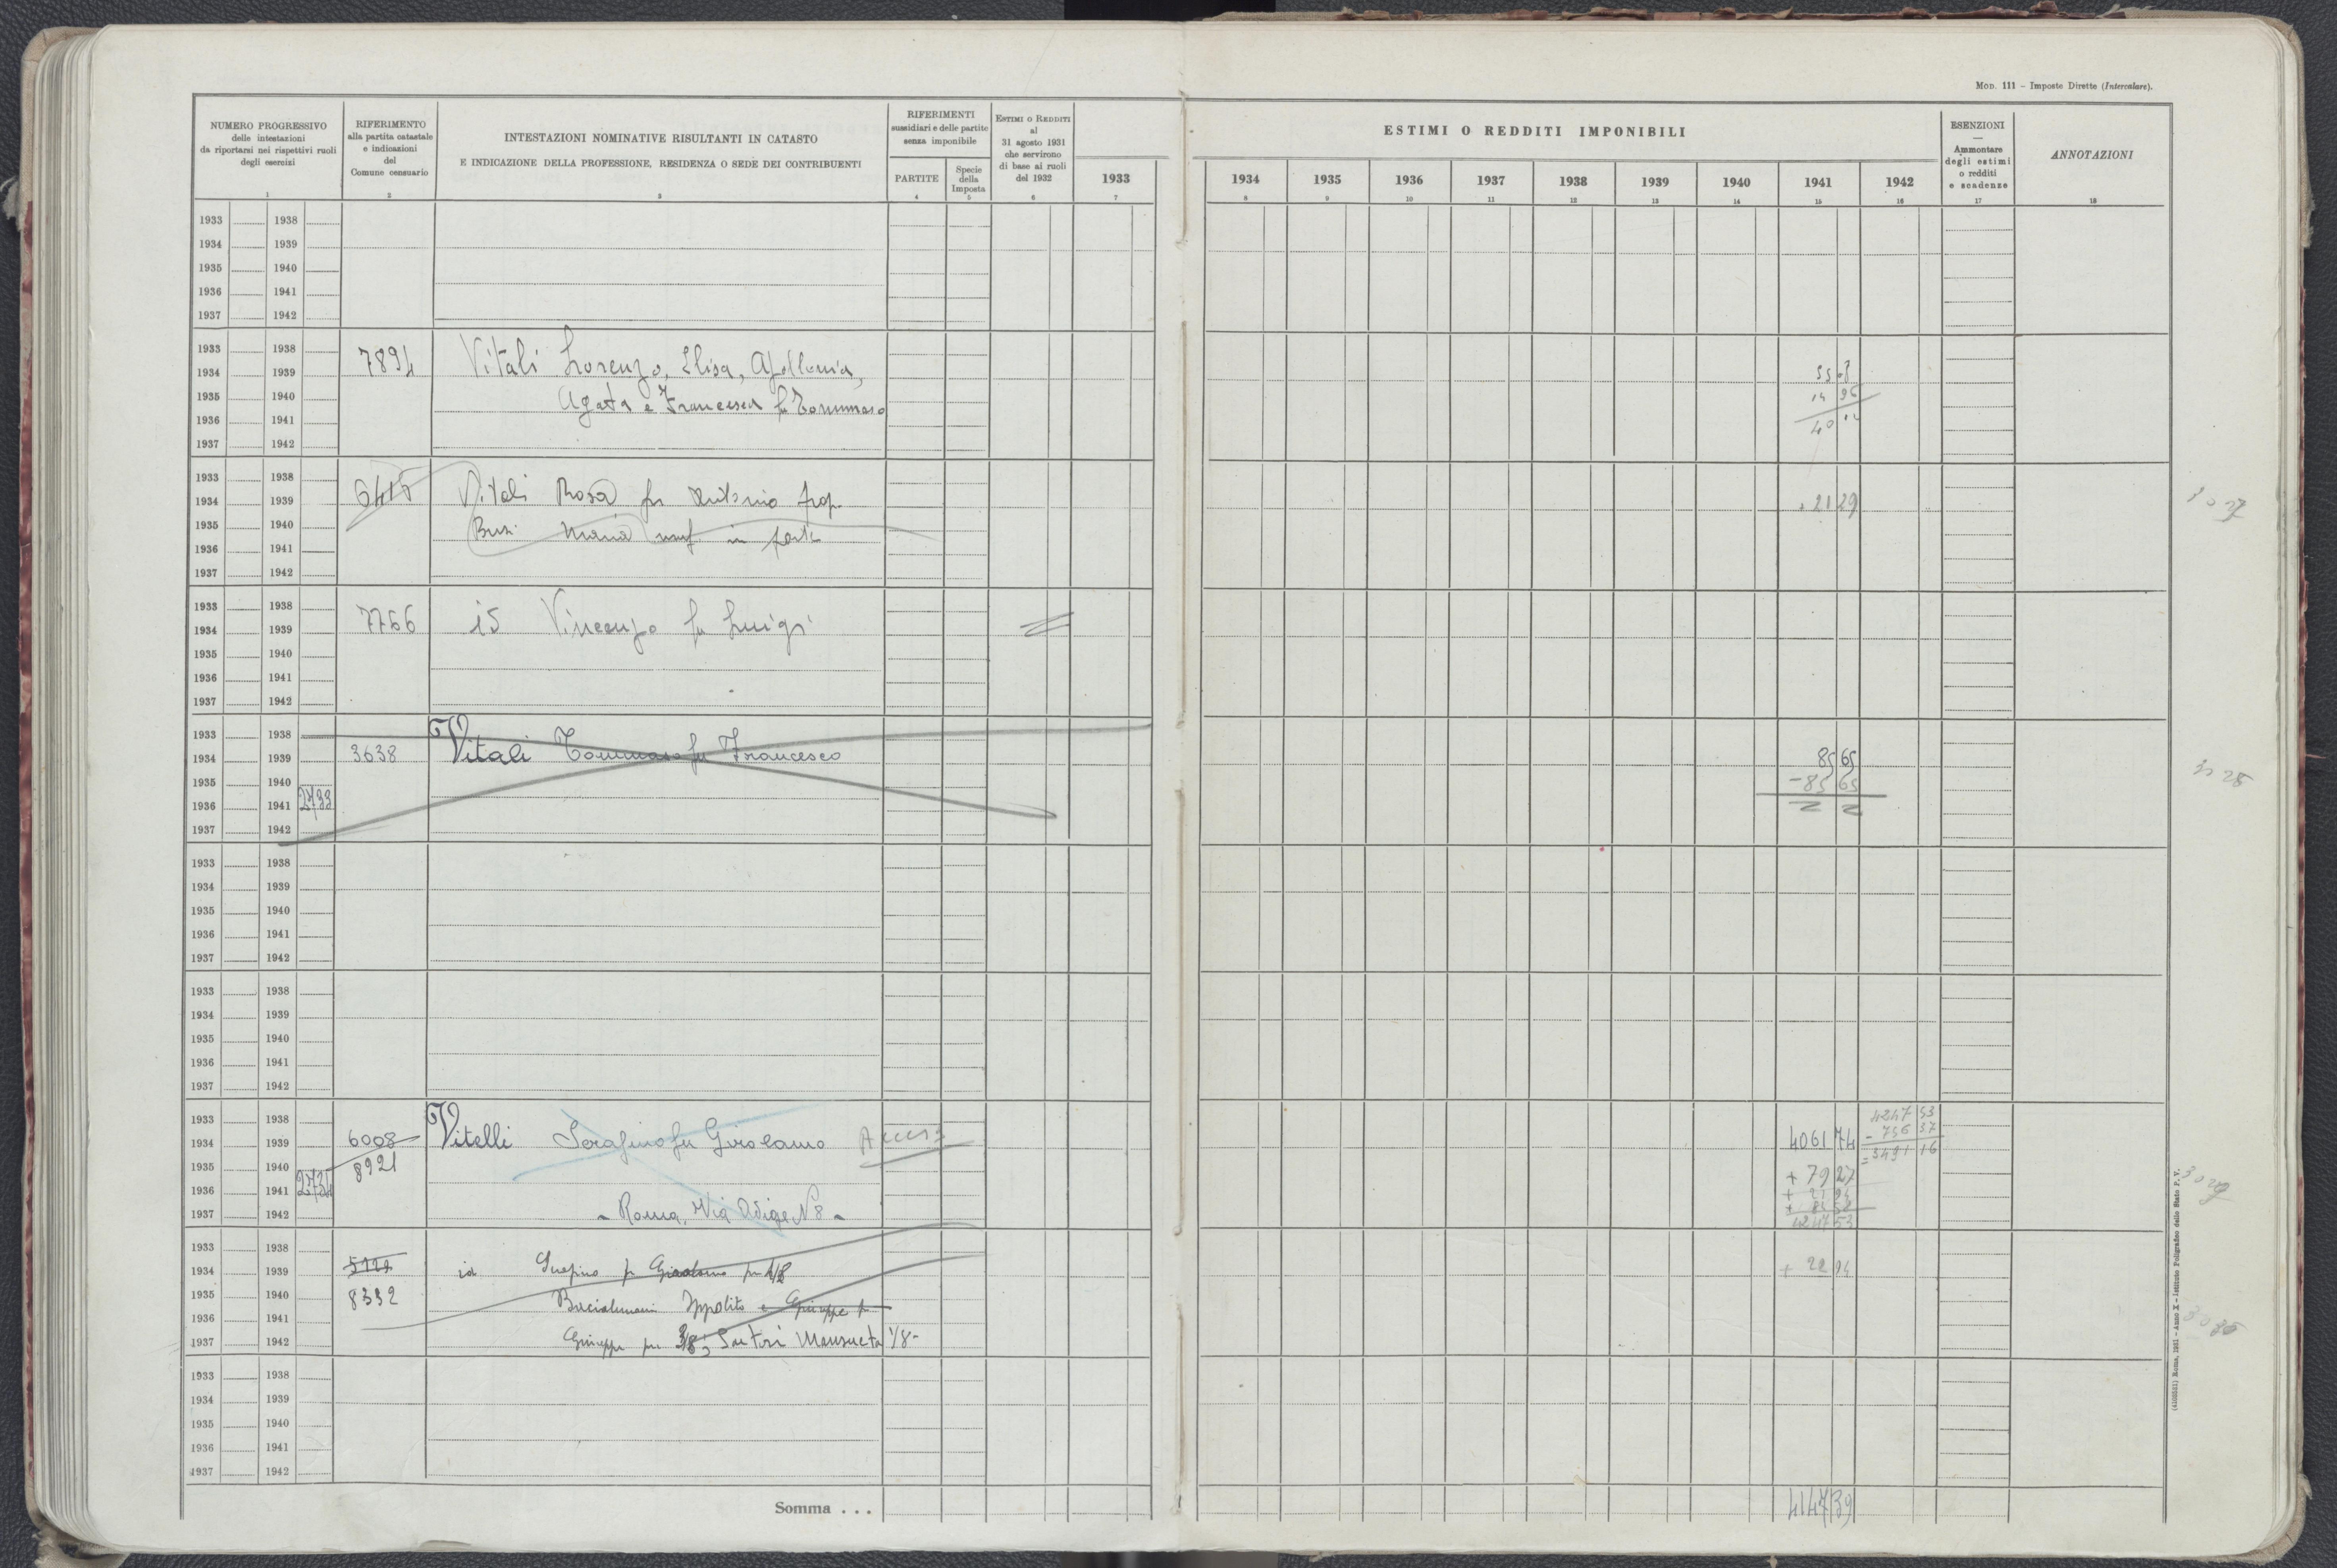 MOD. 111 – Imposte Dirette (Intercalare).
NUMERO PROGRESSIVO
delle intestazioni
da riportarsi nei rispettivi ruoli
degli esercizi
1
RIFERIMENTO
alla partita catastale
e indicazioni
del
Comune censuario
2
INTESTAZIONI NOMINATIVE RISULTANTI IN CATASTO
E INDICAZIONE DELLA PROFESSIONE, RESIDENZA O SEDE DEI CONTRIBUENTI
3
RIFERIMENTI
sussidiari e delle partite
senza imponibile
PARTITE
4
Specie
della
Imposta
5
ESTIMI O REDDITI
al
31 agosto 1931
che servirono
di base ai ruoli
del 1932
6
ESTIMI O REDDITI IMPONIBILI
1933 1934 1935 1936 1937 1938 1939 1940 1941 1942
7 8 9 10 11 12 13 14 15 16
ESENZIONI
—
Ammontare
degli estimi
o redditi
e scadenze
17
ANNOTAZIONI
18
1933 1938
1934 1939
1935 1940
1936 1941
1937 1942
1933 1938
1934 1939 7894 Vitali Lorenzo, Elisa, Apollonia,
1935 1940 Agata e Francesca fu Tommaso
14 96
1936 1941
40 12
1937 1942
1933 1938
1934 1939 6415 Vitali Rosa fu Antonio prop.
+ 21 29
1935 1940 Busi Maria usuf in parte
1936 1941
1937 1942
1933 1938
1934 1939 7766 id Vincenzo fu Luigi
1935 1940
1936 1941
1937 1942
1933 1938
1934 1939 3638 Vitali Tommaso fu Francesco
85 65
1935 1940
- 85 65
1936 1941 2733
1937 1942
3028
1933 1938
1934 1939
1935 1940
1936 1941
1937 1942
1933 1938
1934 1939
1935 1940
1936 1941
1937 1942
1933 1938
4247 53
1934 1939 6008 Vitelli Serafino fu Girolamo
4061 74
- 756 37
= 3491 16
1935 1940 8921
+ 79 27
1936 1941
+ 21 94
1937 1942 - Roma, Via Adige N 8 -
+ 84 58
4247 53
3029
1933 1938
1934 1939 id Serafino fu Girolamo per 4/8
+ 22 94
1935 1940 8332 Ippolito e Giuseppe fu
1936 1941
1937 1942 Giuseppe per 3/8; Sartori Mansueta 1/8 -
1933 1938
1934 1939
1935 1940
1936 1941
1937 1942
Somma . . .
4147 39
(4100541) Roma, 1931 – Anno X – Istituto Poligrafico dello Stato P. V.